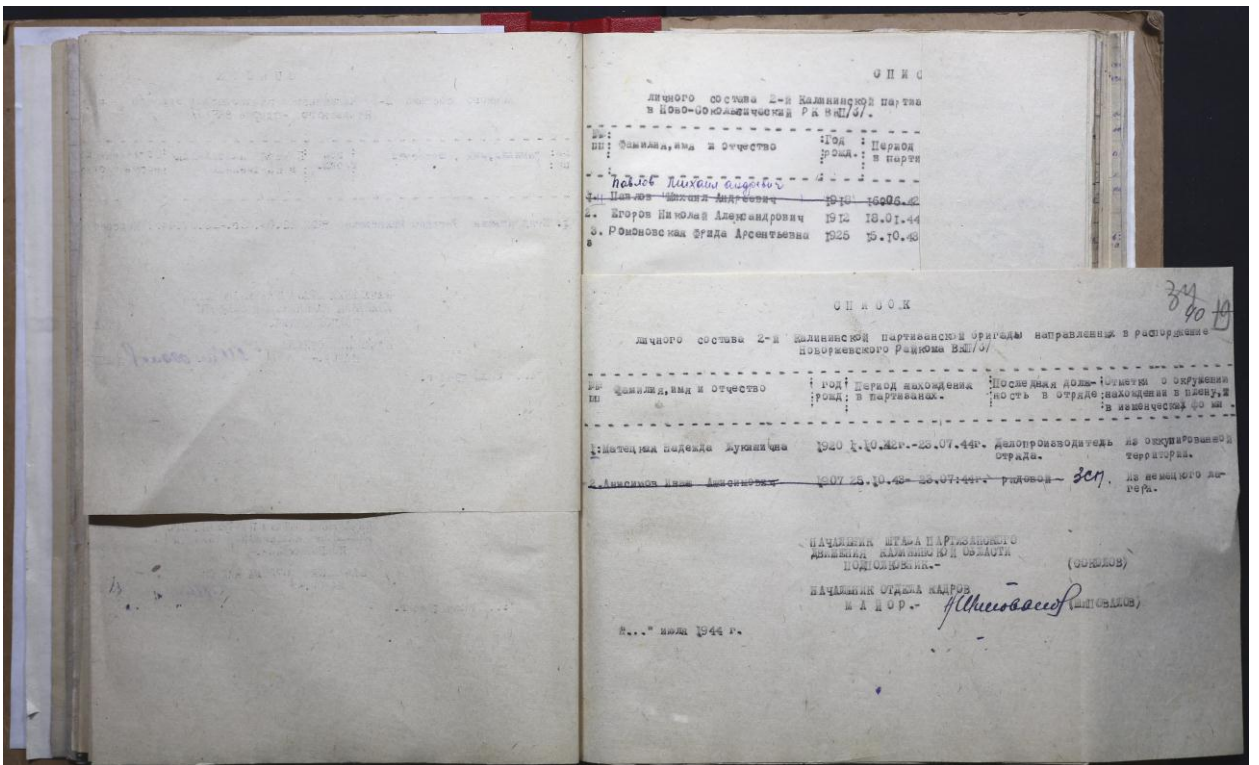 СПИС
личного состава 2-й Калининской партиза
в Ново-Сокольнический РК ВКП/б/.
№№ пп : Фамилия, имя и отчество : Год рожд. : Период в парти
Павлов Михаил андревич
1. Павлов Михаил Андреевич 1918 16.06.42
2. Егоров Николай Александрович 1912 18.01.44
3. Романовская Фрида Арсентьевна 1925 15.10.43
СПИСОК
34
90
личного состава 2-й Калининской партизанской бригады направленных в распоряжение
Новоржевского Райкома ВКП/б/
№№ пп Фамилия, имя и отчество : год рожд. : Период нахождения в партизанах. : Последняя долж-ность в отряде : Отметки о окружении нахождении в плену, в изменческих
1. Надежда Лукинична 1920 1.10.42г.-23.07.44г. Делопроизводитель отряда. из оккупированной территории.
2. Анисимов Иван Анисимович 1907 25.10.43- 23.07.44г. рядовой ЗСП. Из немецкого ла-геря.
НАЧАЛЬНИК ШТАБА ПАРТИЗАНСКОГО
ДВИЖЕНИЯ КАЛИНИНСКОЙ ОБЛАСТИ
ПОДПОЛКОВНИК.- (СОКОЛОВ)
НАЧАЛЬНИК ОТДЕЛА КАДРОВ
МАЙОР.- (ШИПОВАЛОВ)
"..." июля 1944 г.